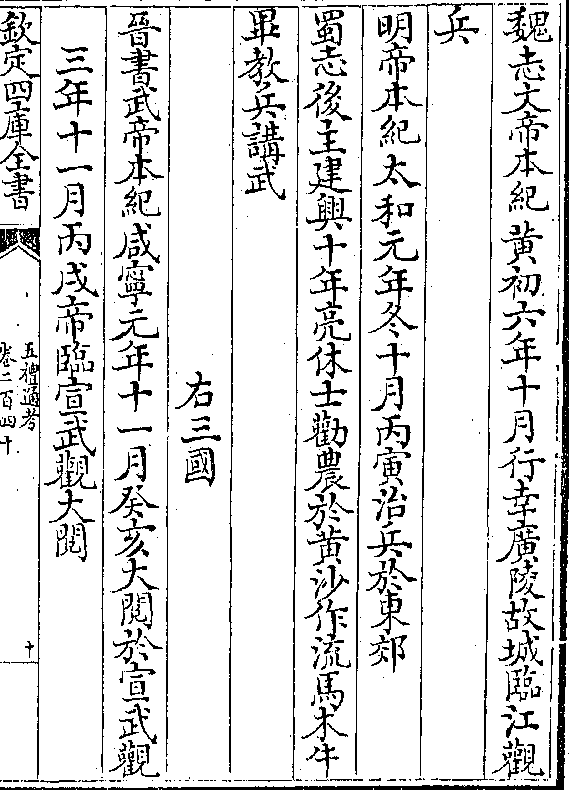 魏志文帝本紀黄初六年十月行幸廣陵故城臨江觀
兵
明帝本紀太和元年冬十月丙寅治兵於東郊
蜀志後主建興十年亮休士勸農於黄沙作流馬木牛
畢教兵講武
右三國
晉書武帝本紀咸寧元年十一月癸亥大閱於宣武觀
三年十一月丙戌帝臨宣武觀大閱
欽定四庫全書
五禮通考
卷二百四十
十